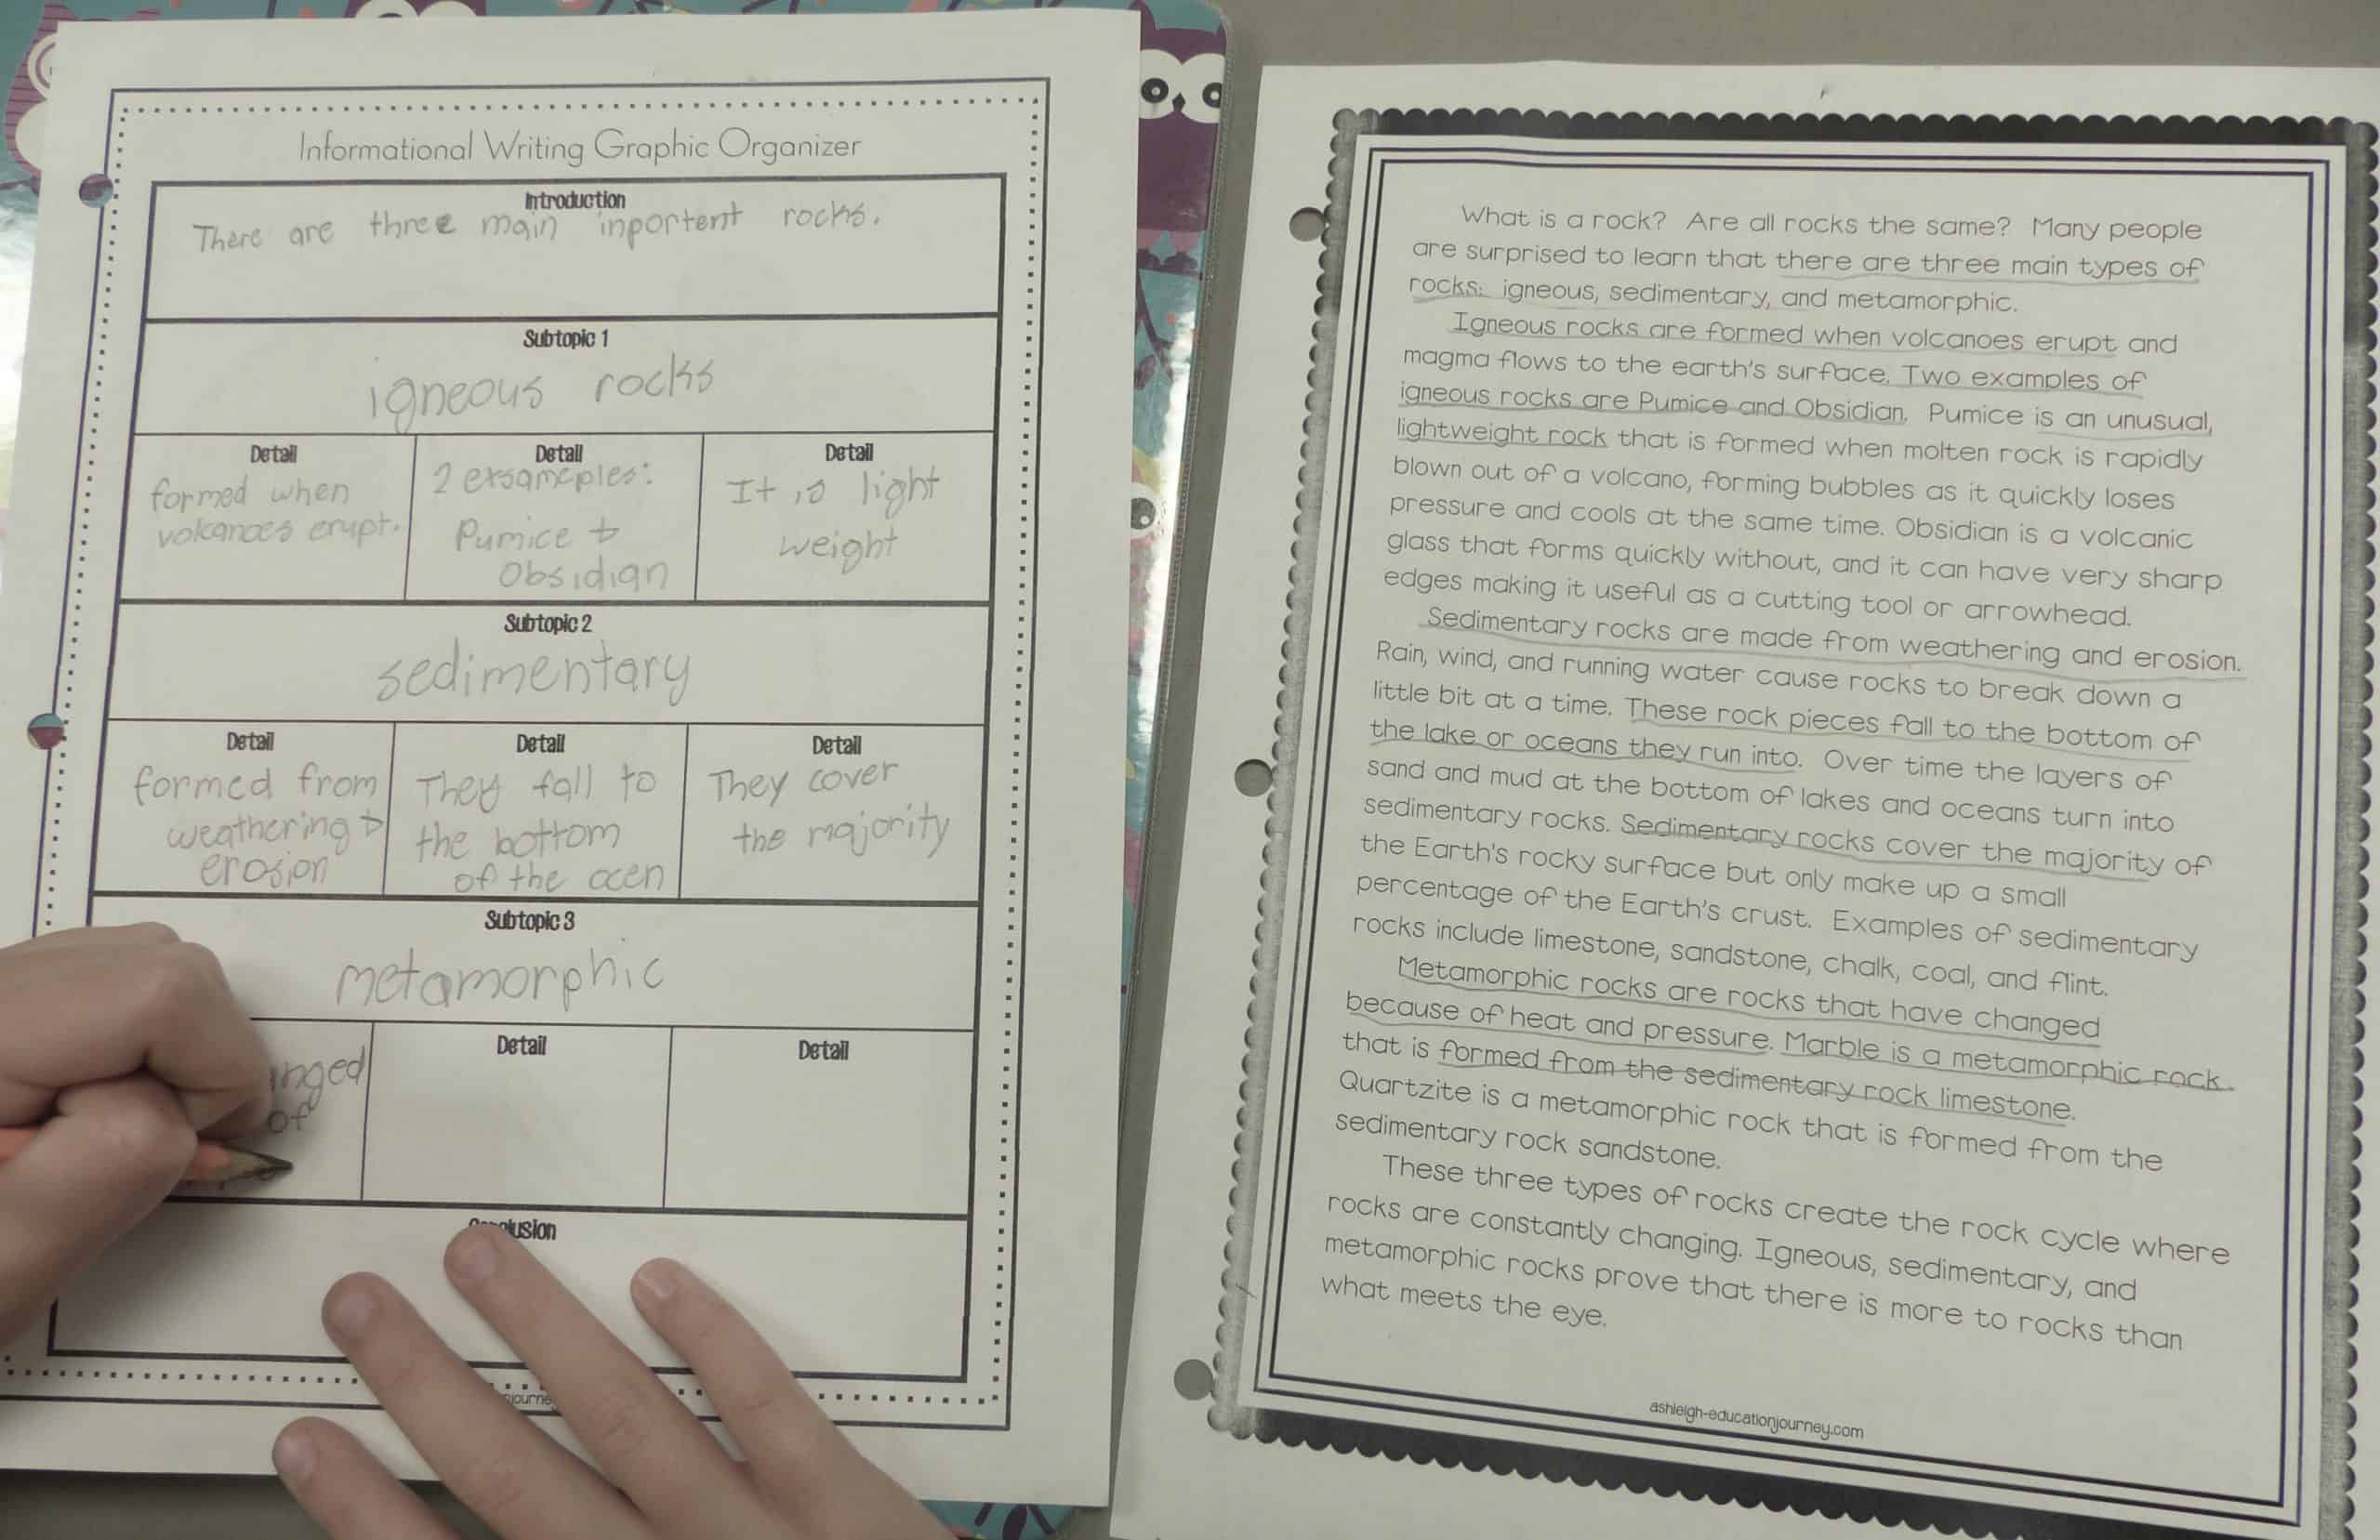 Informational Writing Graphic Organizer
Introduction
There are three main inportent rocks.
Subtopic 1
igneous rocks
Detail
formed when
volcanoes erupt.
Detail
2 exsameples:
Pumice +
Obsidian
Detail
It is light
weight
Subtopic 2
sedimentary
Detail
formed from
weathering +
erosion
Detail
They fall to
the bottom
of the ocen
Detail
They cover
the majority
Subtopic 3
metamorphic
of
Detail
Detail
What is a rock? Are all rocks the same? Many people
are surprised to learn that there are three main types of
rocks: igneous, sedimentary, and metamorphic.
Igneous rocks are formed when volcanoes erupt and
magma flows to the earth's surface. Two examples of
igneous rocks are Pumice and Obsidian. Pumice is an unusual,
lightweight rock that is formed when molten rock is rapidly
blown out of a volcano, forming bubbles as it quickly loses
pressure and cools at the same time. Obsidian is a volcanic
glass that forms quickly without, and it can have very sharp
edges making it useful as a cutting tool or arrowhead.
Sedimentary rocks are made from weathering and erosion.
Rain, wind, and running water cause rocks to break down a
little bit at a time. These rock pieces fall to the bottom of
the lake or oceans they run into. Over time the layers of
sand and mud at the bottom of lakes and oceans turn into
sedimentary rocks. Sedimentary rocks cover the majority of
the Earth's rocky surface but only make up a small
percentage of the Earth's crust. Examples of sedimentary
rocks include limestone, sandstone, chalk, coal, and flint.
Metamorphic rocks are rocks that have changed
because of heat and pressure. Marble is a metamorphic rock
that is formed from the sedimentary rock limestone.
Quartzite is a metamorphic rock that is formed from the
sedimentary rock sandstone.
These three types of rocks create the rock cycle where
rocks are constantly changing. Igneous, sedimentary, and
metamorphic rocks prove that there is more to rocks than
what meets the eye.
ashleigh-educationjourney.com